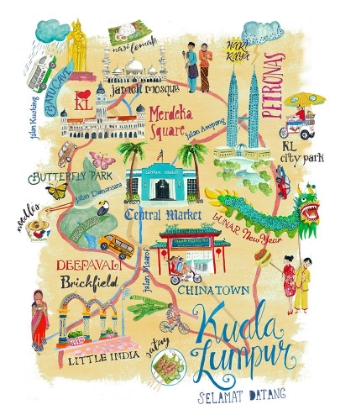 nasi lemak
HARI
RAYA
BATU CAVE
Jamek mosque
PETRONAS
KL
Merdeka
Square
Jalan Ampang
Jalan Kuching
KL
city park
BUTTERFLY PARK
Jalan Damansara
noodles
Central Market
LUNAR New Year
DEEPAVALI
Brickfield
CHINATOWN
LITTLE INDIA
satay
Kuala
Lumpur
SELAMAT DATANG